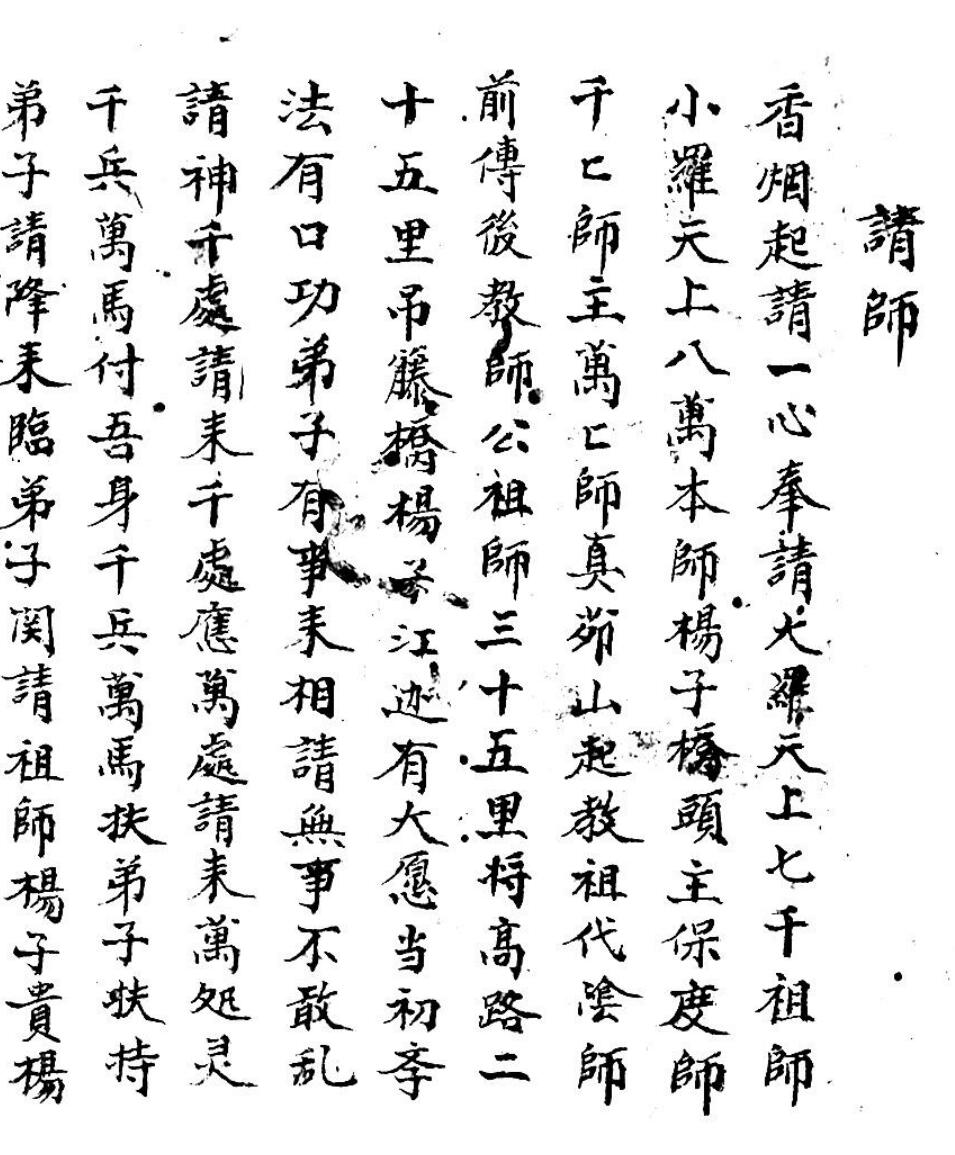 請師
香烟起請一心奉請大羅天上七千祖師
小羅天上八萬本師楊子橋頭主保度師
千匕師主萬匕師真茆山起教祖代陰師
前傳後教師公祖師三十五里将高路二
十五里吊籐橋楊子江边有大愿当初孝
法有口功弟子有事来相請無事不敢乱
請神千處請来千處應萬處請来萬処灵
千兵萬馬付吾身千兵萬馬扶弟子扶持
弟子請降来臨弟子関請祖師楊子貴楊